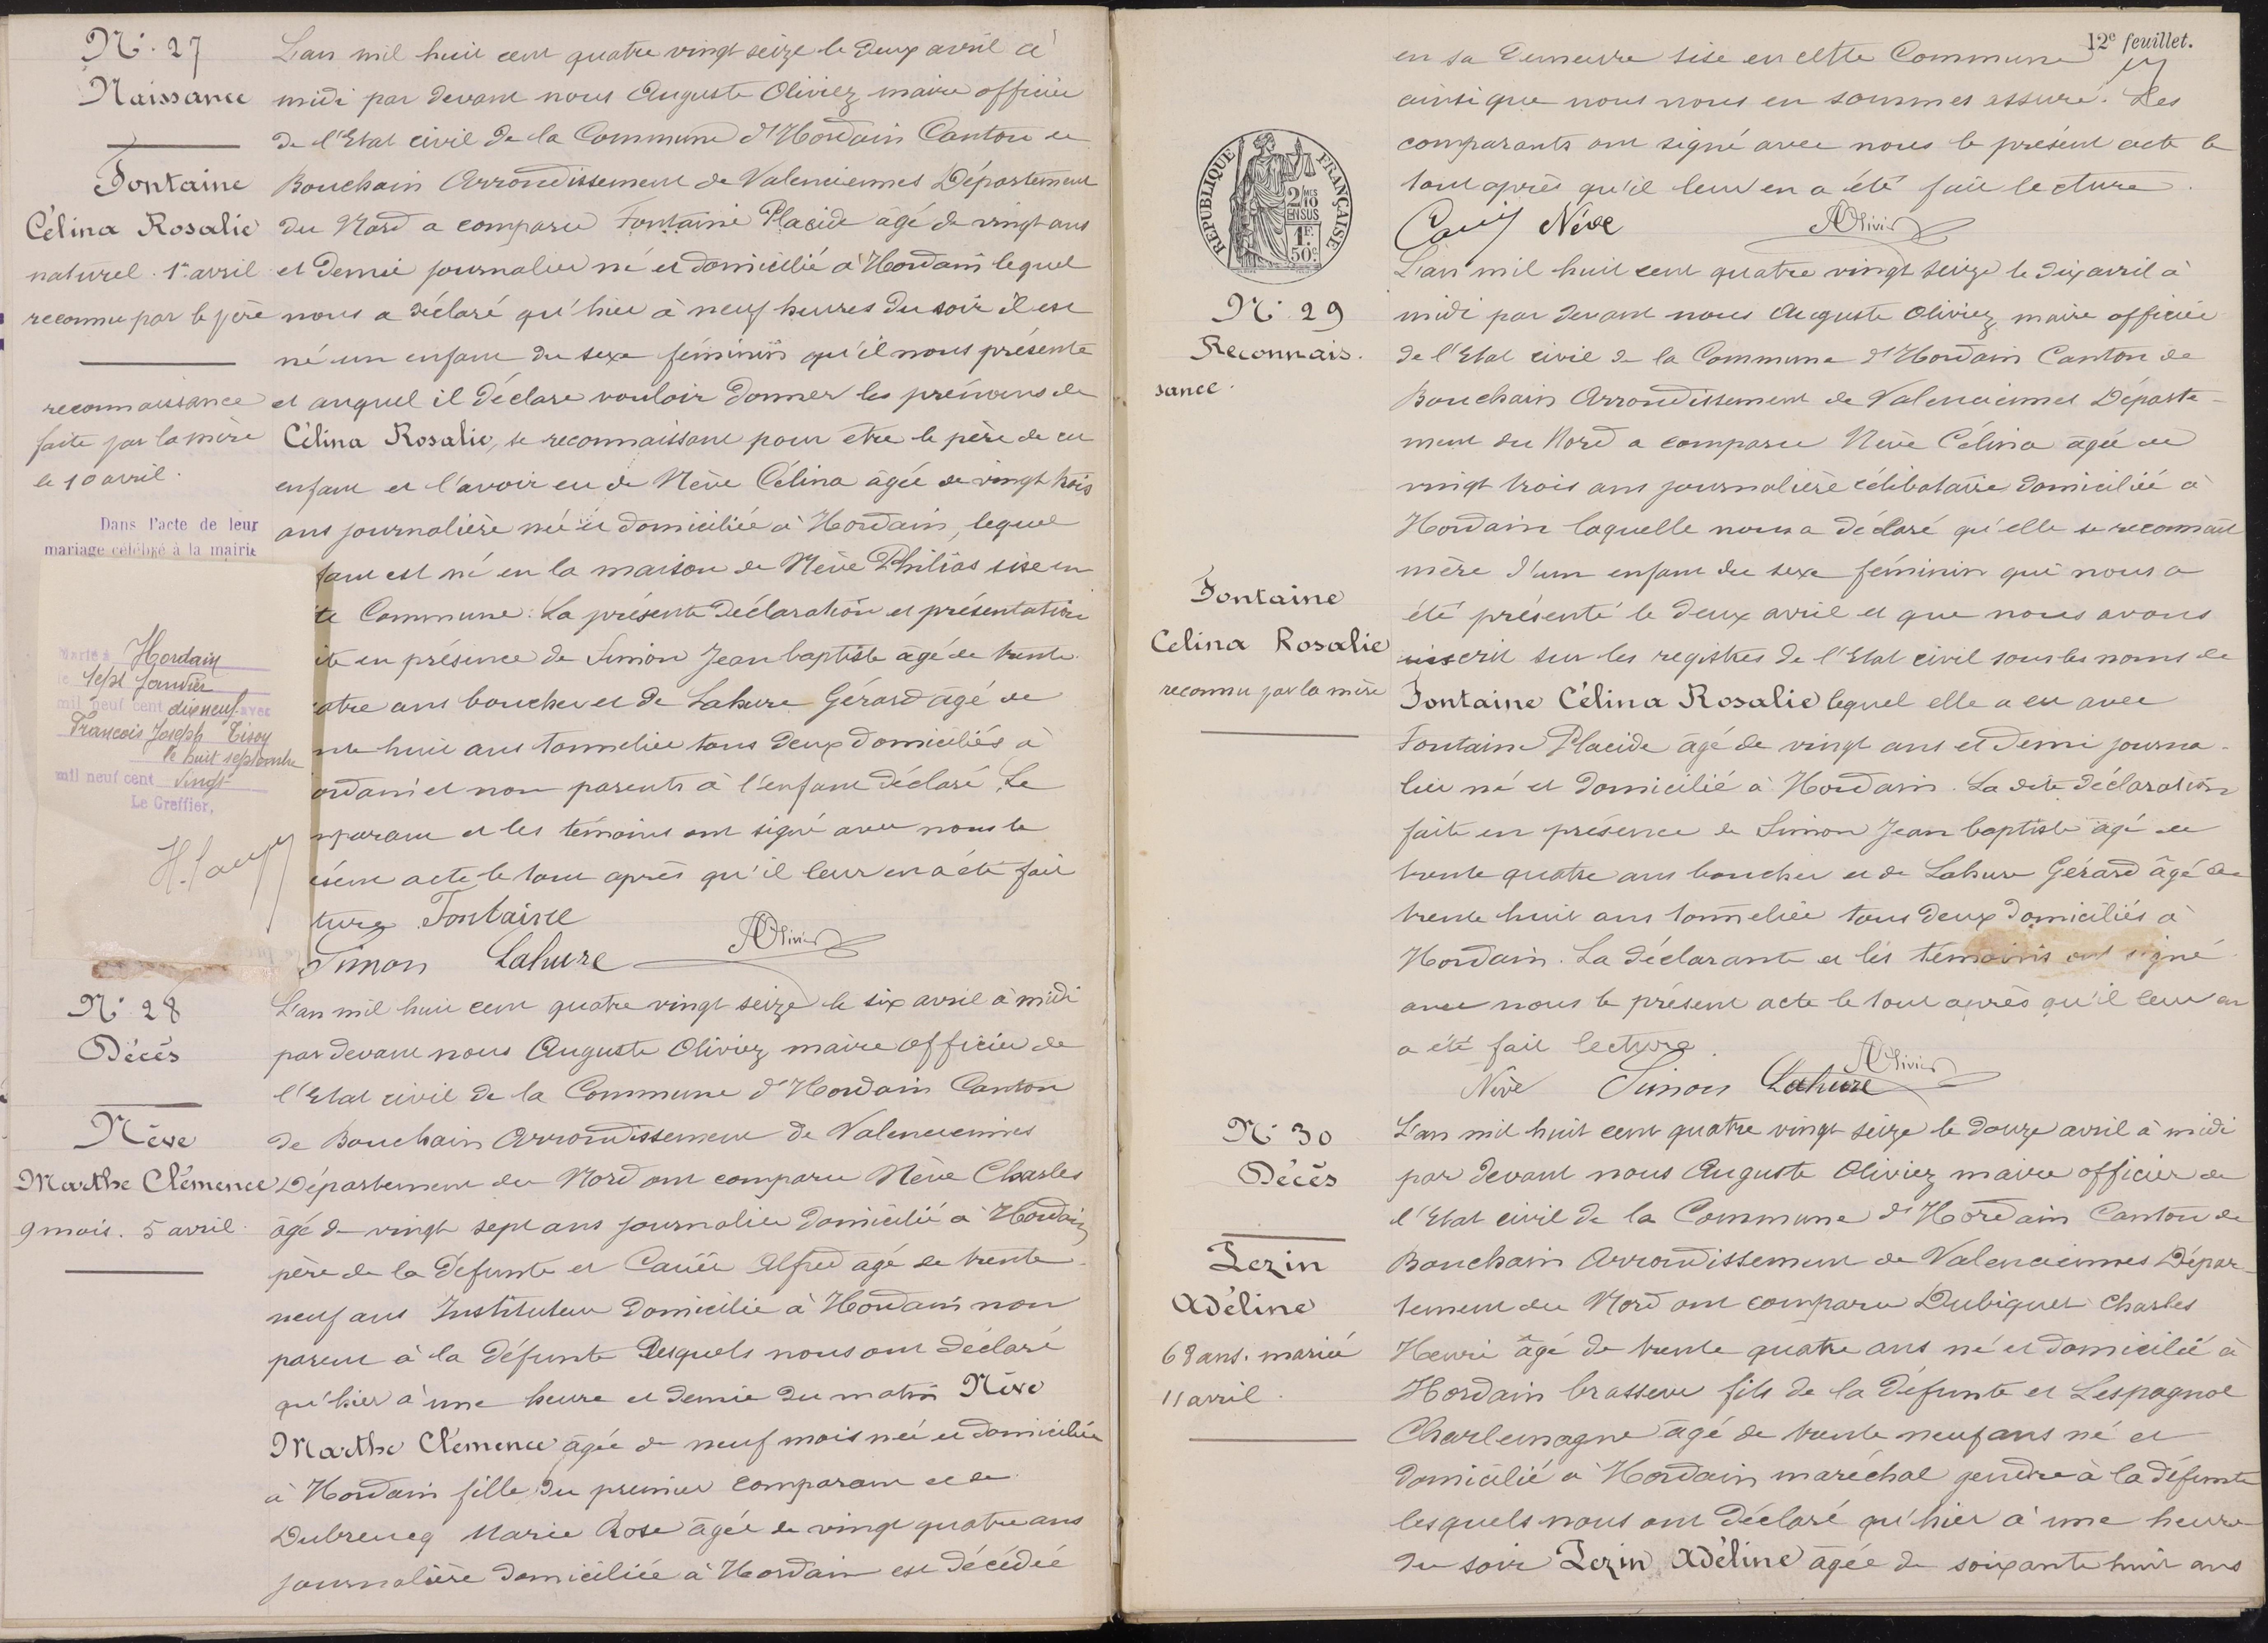 N° 27
Naissance
Fontaine
Célina Rosalie
naturel. 1er avril
reconnue par le père
reconnaissance
faite par la mère
le 10 avril.
Dans l'acte de leur
mariage célébré à la mairie
Marié à Hordain
le sept Janvier
mil neuf cent dix neuf avec
François Joseph Tison
le huit septembre
mil neuf cent vingt
Le Greffier,
L'an mil huit cent quatre vingt seize le deux avril à
midi par devant nous Auguste Oliviez maire officier
de l'Etat civil de la Commune d'Hordain Canton de
Bouchain Arrondissement de Valenciennes Département
du Nord a comparu Fontaine Placide âgé de vingt ans
et demie journalier né et domicilié à Hordain lequel
nous a déclaré qu'hier à neuf heures du soir il est
né un enfant du sexe féminin qu'il nous présente
et auquel il déclare vouloir donner les prénoms de
Célina Rosalie, se reconnaissant pour être le père de cet
enfant et l'avoir eu de Nève Célina âgée de vingt trois
ans journalière née et domiciliée à Hordain, lequel
fant est né en la maison de Nève Philias sise en
te Commune. La présente déclaration et présentation
ite en présence de Simon Jean baptiste âgé de trente
atre ans boucher et de Lahure Gérard âgé de
nte huit ans tonnelier tous deux domiciliés à
ordain et non parents à l'enfant déclaré. Le
mparant et les témoins ont signé avec nous le
ésent acte le tout après qu'il leur en a été fait
ture Fontaine
Simon Lahure AOliviez
N° 28
Décès
Nève
Marthe Clémence
9 mois. 5 avril.
L'an mil huit cent quatre vingt seize le six avril à midi
par devant nous Auguste Oliviez maire officier de
l'Etat civil de la Commune d'Hordain Canton
de Bouchain Arrondissement de Valenciennes
Département du Nord ont comparu Nève Charles
âgé de vingt sept ans journalier domicilié à Hordain
père de la défunte et Alfred âgé de trente
neuf ans Instituteur domicilié à Hordain non
parent à la défunte Lesquels nous ont déclaré
qu'hier à une heure et demie du matin Nève
Marthe Clémence âgée de neuf mois née et domiciliée
à Hordain fille du premier comparant et de
Dubrencq Marie Rose âgée de vingt quatre ans
journalière domiciliée à Hordain est décédée
12e feuillet.
en sa demeure sise en cette Commune
ainsi que nous nous en sommes assuré. Les
comparants ont signé avec nous le présent acte le
tout après qu'il leur en a été fait lecture.
Nève AOliviez
RÉPUBLIQUE FRANÇAISE
2/10 MES
EN SUS
1F.
50c.
N° 29
Reconnais-
sance.
Fontaine
Celina Rosalie
reconnu par la mère
L'an mil huit cent quatre vingt seize le dix avril à
midi par devant nous Auguste Oliviez maire officier
de l'Etat civil de la Commune d'Hordain Canton de
Bouchain Arrondissement de Valenciennes Départe-
ment du Nord a comparu Nève Célina âgée de
vingt trois ans journalière célibataire domiciliée à
Hordain laquelle nous a déclaré qu'elle se reconnait
mère d'un enfant du sexe féminin qui nous a
été présenté le deux avril et que nous avons
inscrit sur les registres de l'Etat civil sous les noms de
Fontaine Célina Rosalie lequel elle a eu avec
Fontaine Placide âgé de vingt ans et demi journa-
lier né et domicilié à Hordain. La dite déclaration
faite en présence de Simon Jean baptiste âgé de
trente quatre ans boucher et de Lahure Gérard âgé de
trente huit ans tonnelier tous deux domiciliés à
Hordain. La déclarante et les témoins ont signé
avec nous le présent acte le tout après qu'il leur en
a été fait lecture.
Nève Simon Lahure AOliviez
N° 30
Décès
Lezin
Adéline
68 ans. mariée
11 avril.
L'an mil huit cent quatre vingt seize le douze avril à midi
par devant nous Auguste Oliviez maire officier de
l'Etat civil de la Commune d'Hordain Canton de
Bouchain Arrondissement de Valenciennes Dépar-
tement du Nord ont comparu Dubiquet Charles
Henri âgé de trente quatre ans né et domicilié à
Hordain brasseur fils de la défunte et Lespagnol
Charlemagne âgé de trente neuf ans né et
domicilié à Hordain maréchal gendre à la défunte
lesquels nous ont déclaré qu'hier à une heure
du soir Lezin Adéline âgée de soixante huit ans